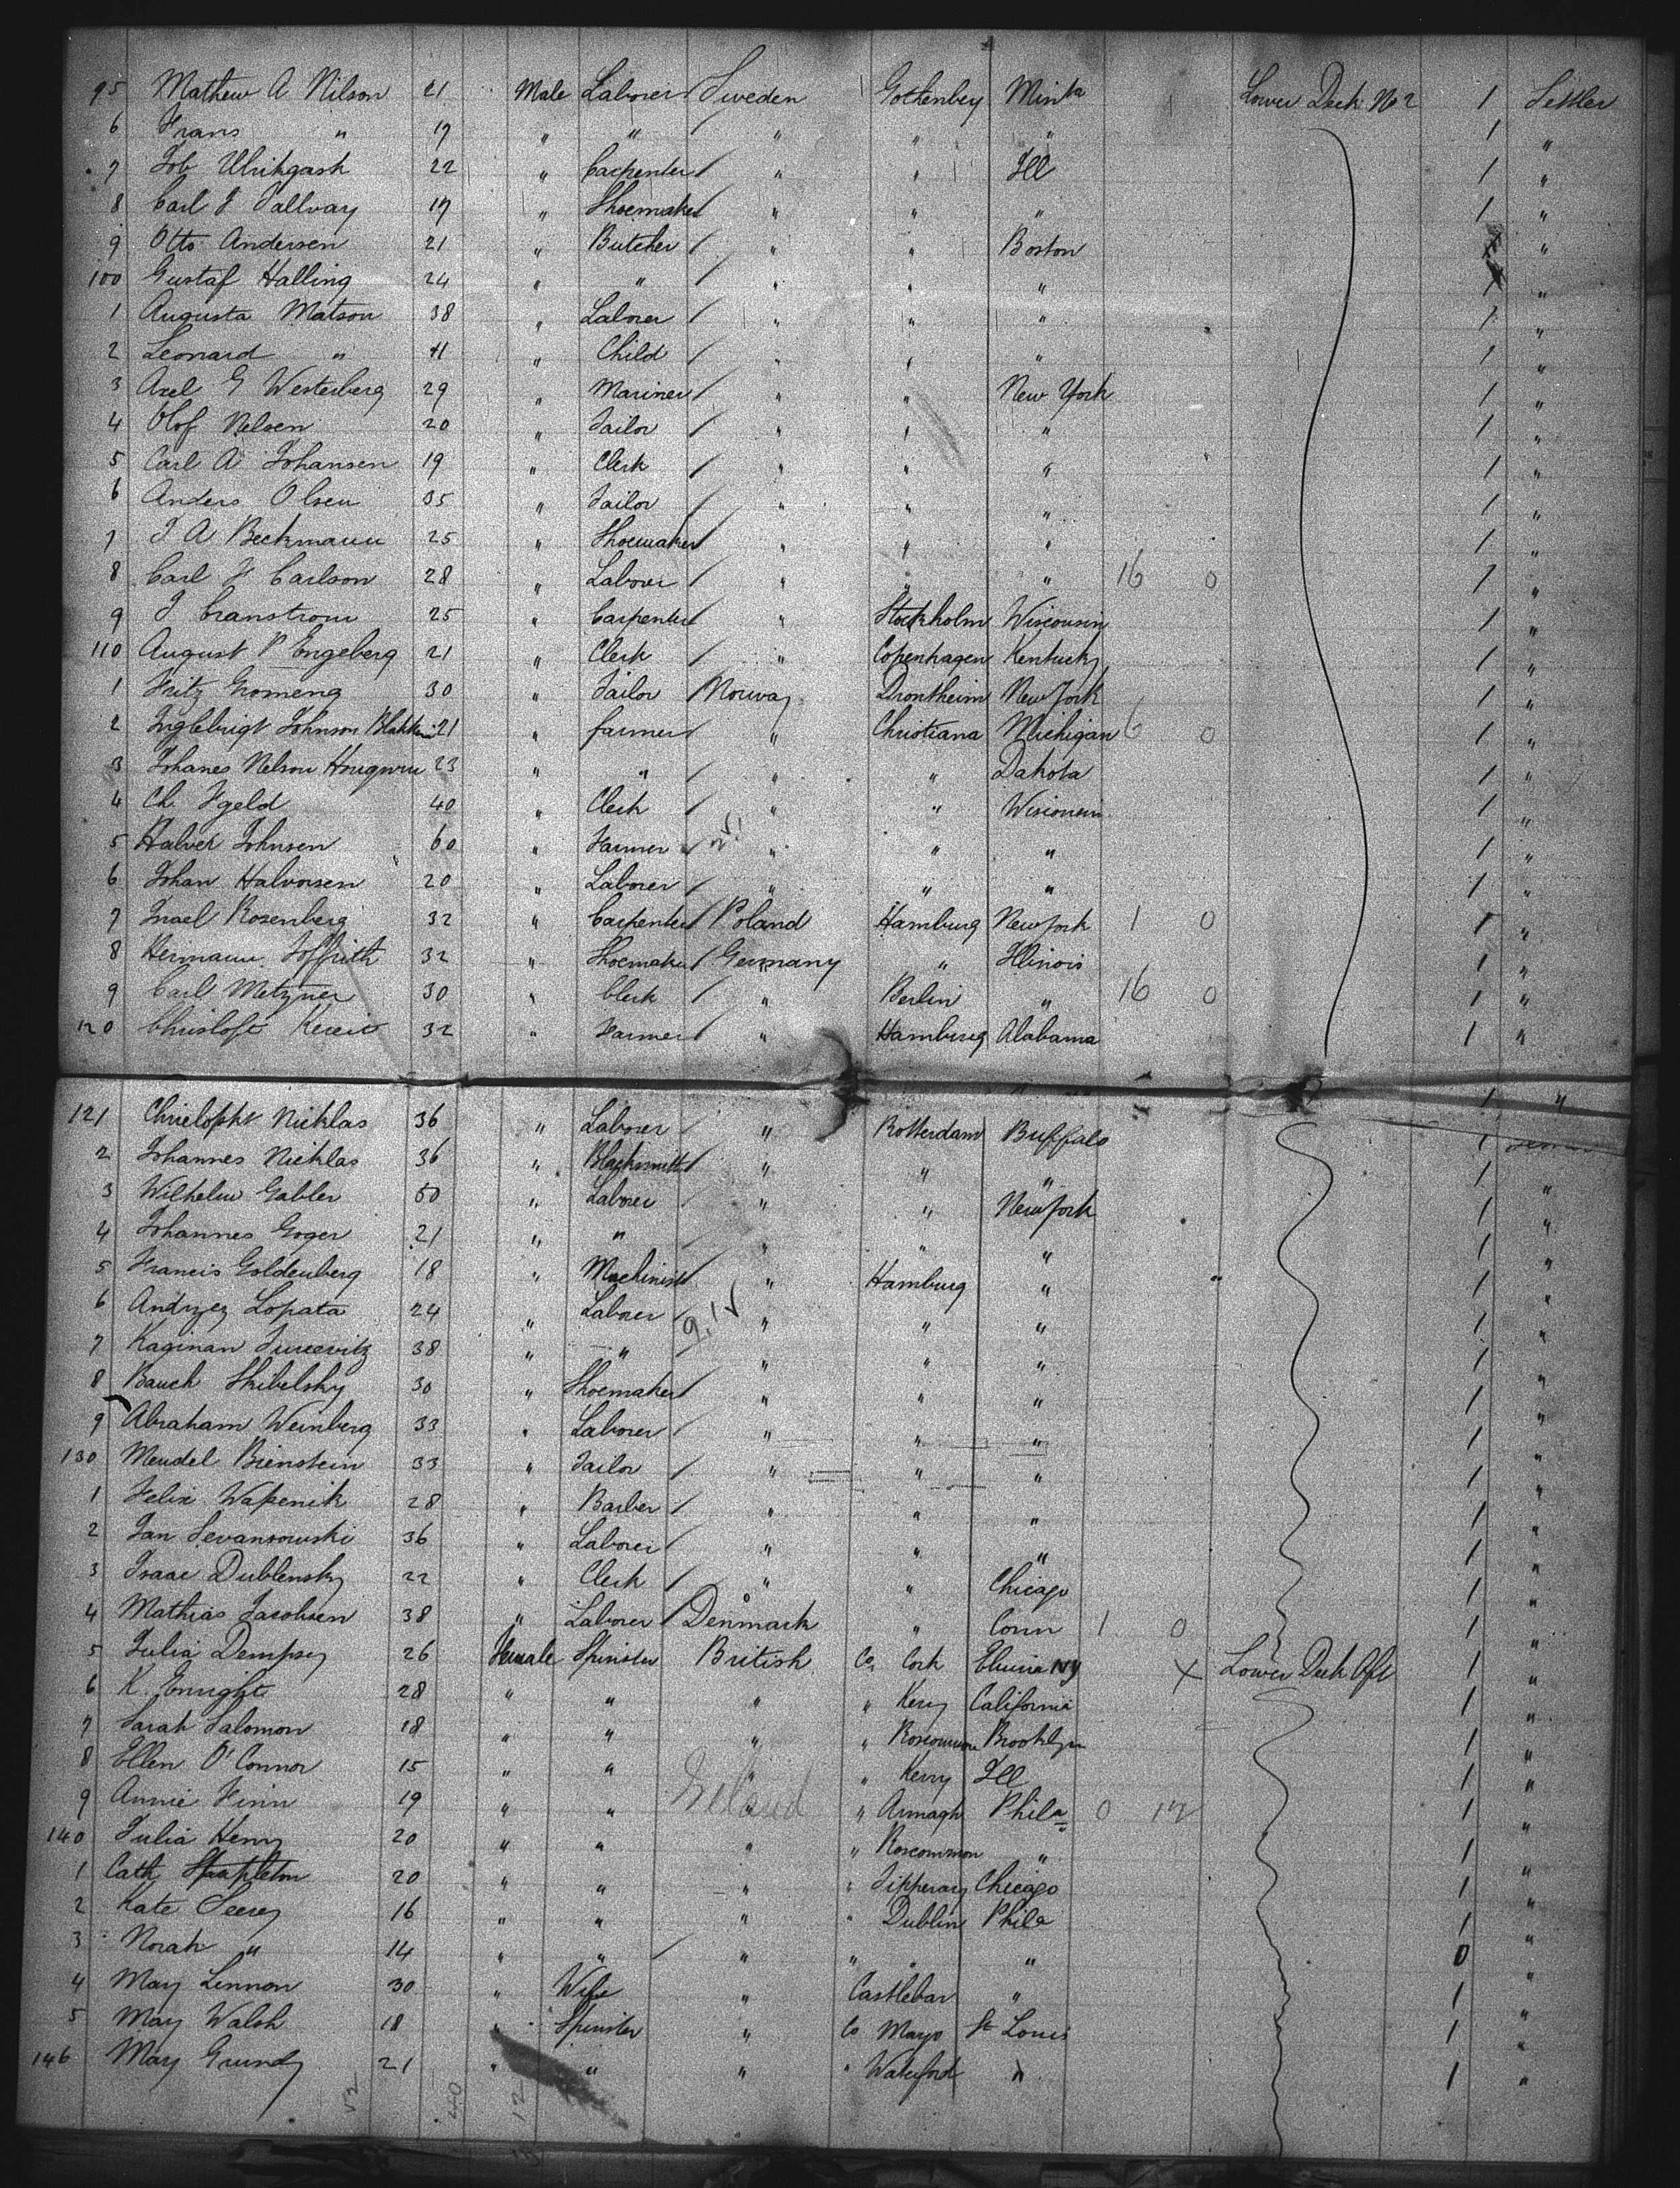 95 Mathew A Nilson 21 Male Laborer Sweden Gottenbey Minta Lower Deck No 2 1 Settler
6 Frans " 19 " " " " " 1 "
7 Job Ulrikgash 22 " Carpenter " " Ill 1 "
8 Carl J Tallvay 19 " Shoemaker " " " 1 "
9 Otto Andersen 21 " Butcher " " Boston 1 "
100 Gustaf Halling 24 " " " " " 1 "
1 Augusta Matson 38 " Laborer " " " 1 "
2 Leonard " 11 " Child " " " 1 "
3 Axel G Westerberg 29 " Mariner " " New York 1 "
4 Olof Nelsen 20 " Tailor " " " 1 "
5 Carl A Johansen 19 " Clerk " " " 1 "
6 Anders Olsen 35 " Tailor " " " 1 "
7 J A Beckmann 25 " Shoemaker " " " 1 "
8 Carl F Carlson 28 " Laborer " " " 16 0 1 "
9 J Cranstrom 25 " Carpenter " Stockholm Wisconsin 1 "
110 August P Engeberg 21 " Clerk " Copenhagen Kentucky 1 "
1 Fritz Gromeng 30 " Tailor Norway Drontheim New York 1 "
2 Inglebrigt Johnson 21 " farmer " Christiana Michigan 6 0 1 "
3 Johanes Nelson 23 " " " " Dakota 1 "
4 Ch. Fgeld 40 " Clerk " " Wisconsin 1 "
5 Halver Johnsen 60 " Farmer " " " 1 "
6 Johan Halvorsen 20 " Laborer " " " 1 "
7 Israel Rosenberg 32 " Carpenter Poland Hamburg New York 1 0 1 "
8 Hermann 32 " Shoemaker Germany " Illinois 1 "
9 Carl Metzner 30 " Clerk " Berlin " 16 0 1 "
120 32 " Farmer " Hamburg Alabama 1 "
1 "
121 Nicklas 36 " Laborer " Rotterdam Buffalo 1
2 Johannes Nicklas 36 " Blacksmith " " " 1 "
3 Wilhelm Gabler 50 " Laborer " " New York 1 "
4 Johannes Goger 21 " " " " " 1 "
5 Francis Goldenberg 18 " Machinist " Hamburg " 1 "
6 Andrzey Lopata 24 " Laborer " " " 1 "
7 Kaginan 38 " " " " " 1 "
8 Bauch Skibelsky 30 " Shoemaker " " " 1 "
9 Abraham Weinberg 33 " Laborer " " " 1 "
130 Mendel Bienstein 33 " Tailor " " " 1 "
1 Felix Wapenik 28 " Barber " " " 1 "
2 Jan Sevansowski 36 " Laborer " " " 1 "
3 Isaac Dublensky 22 " Clerk " " Chicago 1 "
4 Mathias Jacobsen 38 " Laborer Denmark " Conn 1 0 1 "
5 Julia Dempsey 26 Female Spinster British Co Cork NY X Lower Deck Aft 1 "
6 K. Enright 28 " " " " Kery California 1 "
7 Sarah Salomon 18 " " " " Roscommon Brooklyn 1 "
8 Ellen O'Connor 15 " " " " Kerry Ill 1 "
9 Annie Finn 19 " " Ireland " " Armagh Phila 0 12 1 "
140 Julia Henry 20 " " " " Roscommon " 1 "
1 Cath Stapleton 20 " " " " Tipperary Chicago 1 "
2 Kate Seerey 16 " " " " Dublin Phila 1 "
3 Norah " 14 " " " " " " 0 "
4 Mary Lennon 30 " Wife " Castlebar " 1 "
5 Mary Walsh 18 " Spinster " Co Mayo St Louis 1 "
146 Mary Grundy 21 " " " " Waterford " 1 "
52 40 12